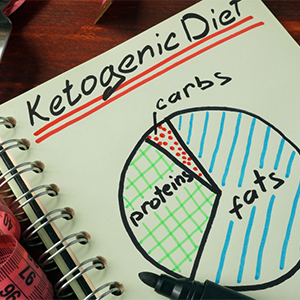 Ketogenic Diet
carbs
proteins
fats